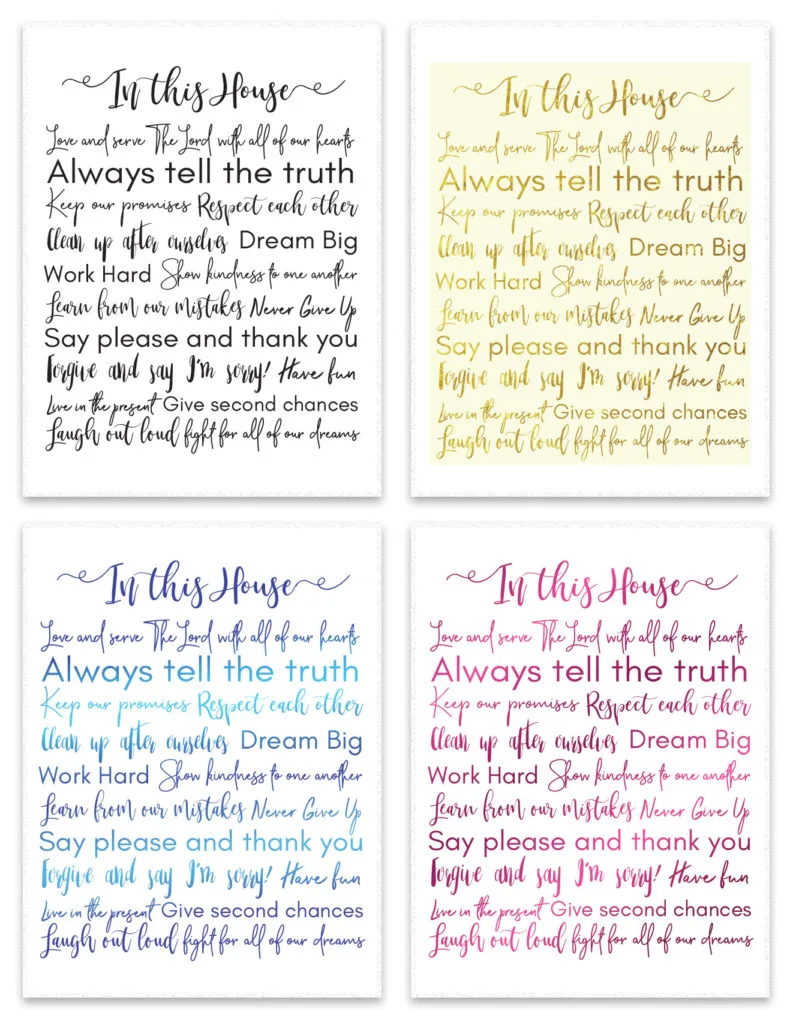 In this House
Love and serve The Lord with all of our hearts
Always tell the truth
Keep our promises Respect each other
Clean up after ourselves Dream Big
Work Hard Show kindness to one another
Learn from our mistakes Never Give Up
Say please and thank you
Forgive and say I'm sorry! Have fun
Live in the present Give second chances
Laugh out loud fight for all of our dreams
In this House
Love and serve The Lord with all of our hearts
Always tell the truth
Keep our promises Respect each other
Clean up after ourselves Dream Big
Work Hard Show kindness to one another
Learn from our mistakes Never Give Up
Say please and thank you
Forgive and say I'm sorry! Have fun
Live in the present Give second chances
Laugh out loud fight for all of our dreams
In this House
Love and serve The Lord with all of our hearts
Always tell the truth
Keep our promises Respect each other
Clean up after ourselves Dream Big
Work Hard Show kindness to one another
Learn from our mistakes Never Give Up
Say please and thank you
Forgive and say I'm sorry! Have fun
Live in the present Give second chances
Laugh out loud fight for all of our dreams
In this House
Love and serve The Lord with all of our hearts
Always tell the truth
Keep our promises Respect each other
Clean up after ourselves Dream Big
Work Hard Show kindness to one another
Learn from our mistakes Never Give Up
Say please and thank you
Forgive and say I'm sorry! Have fun
Live in the present Give second chances
Laugh out loud fight for all of our dreams